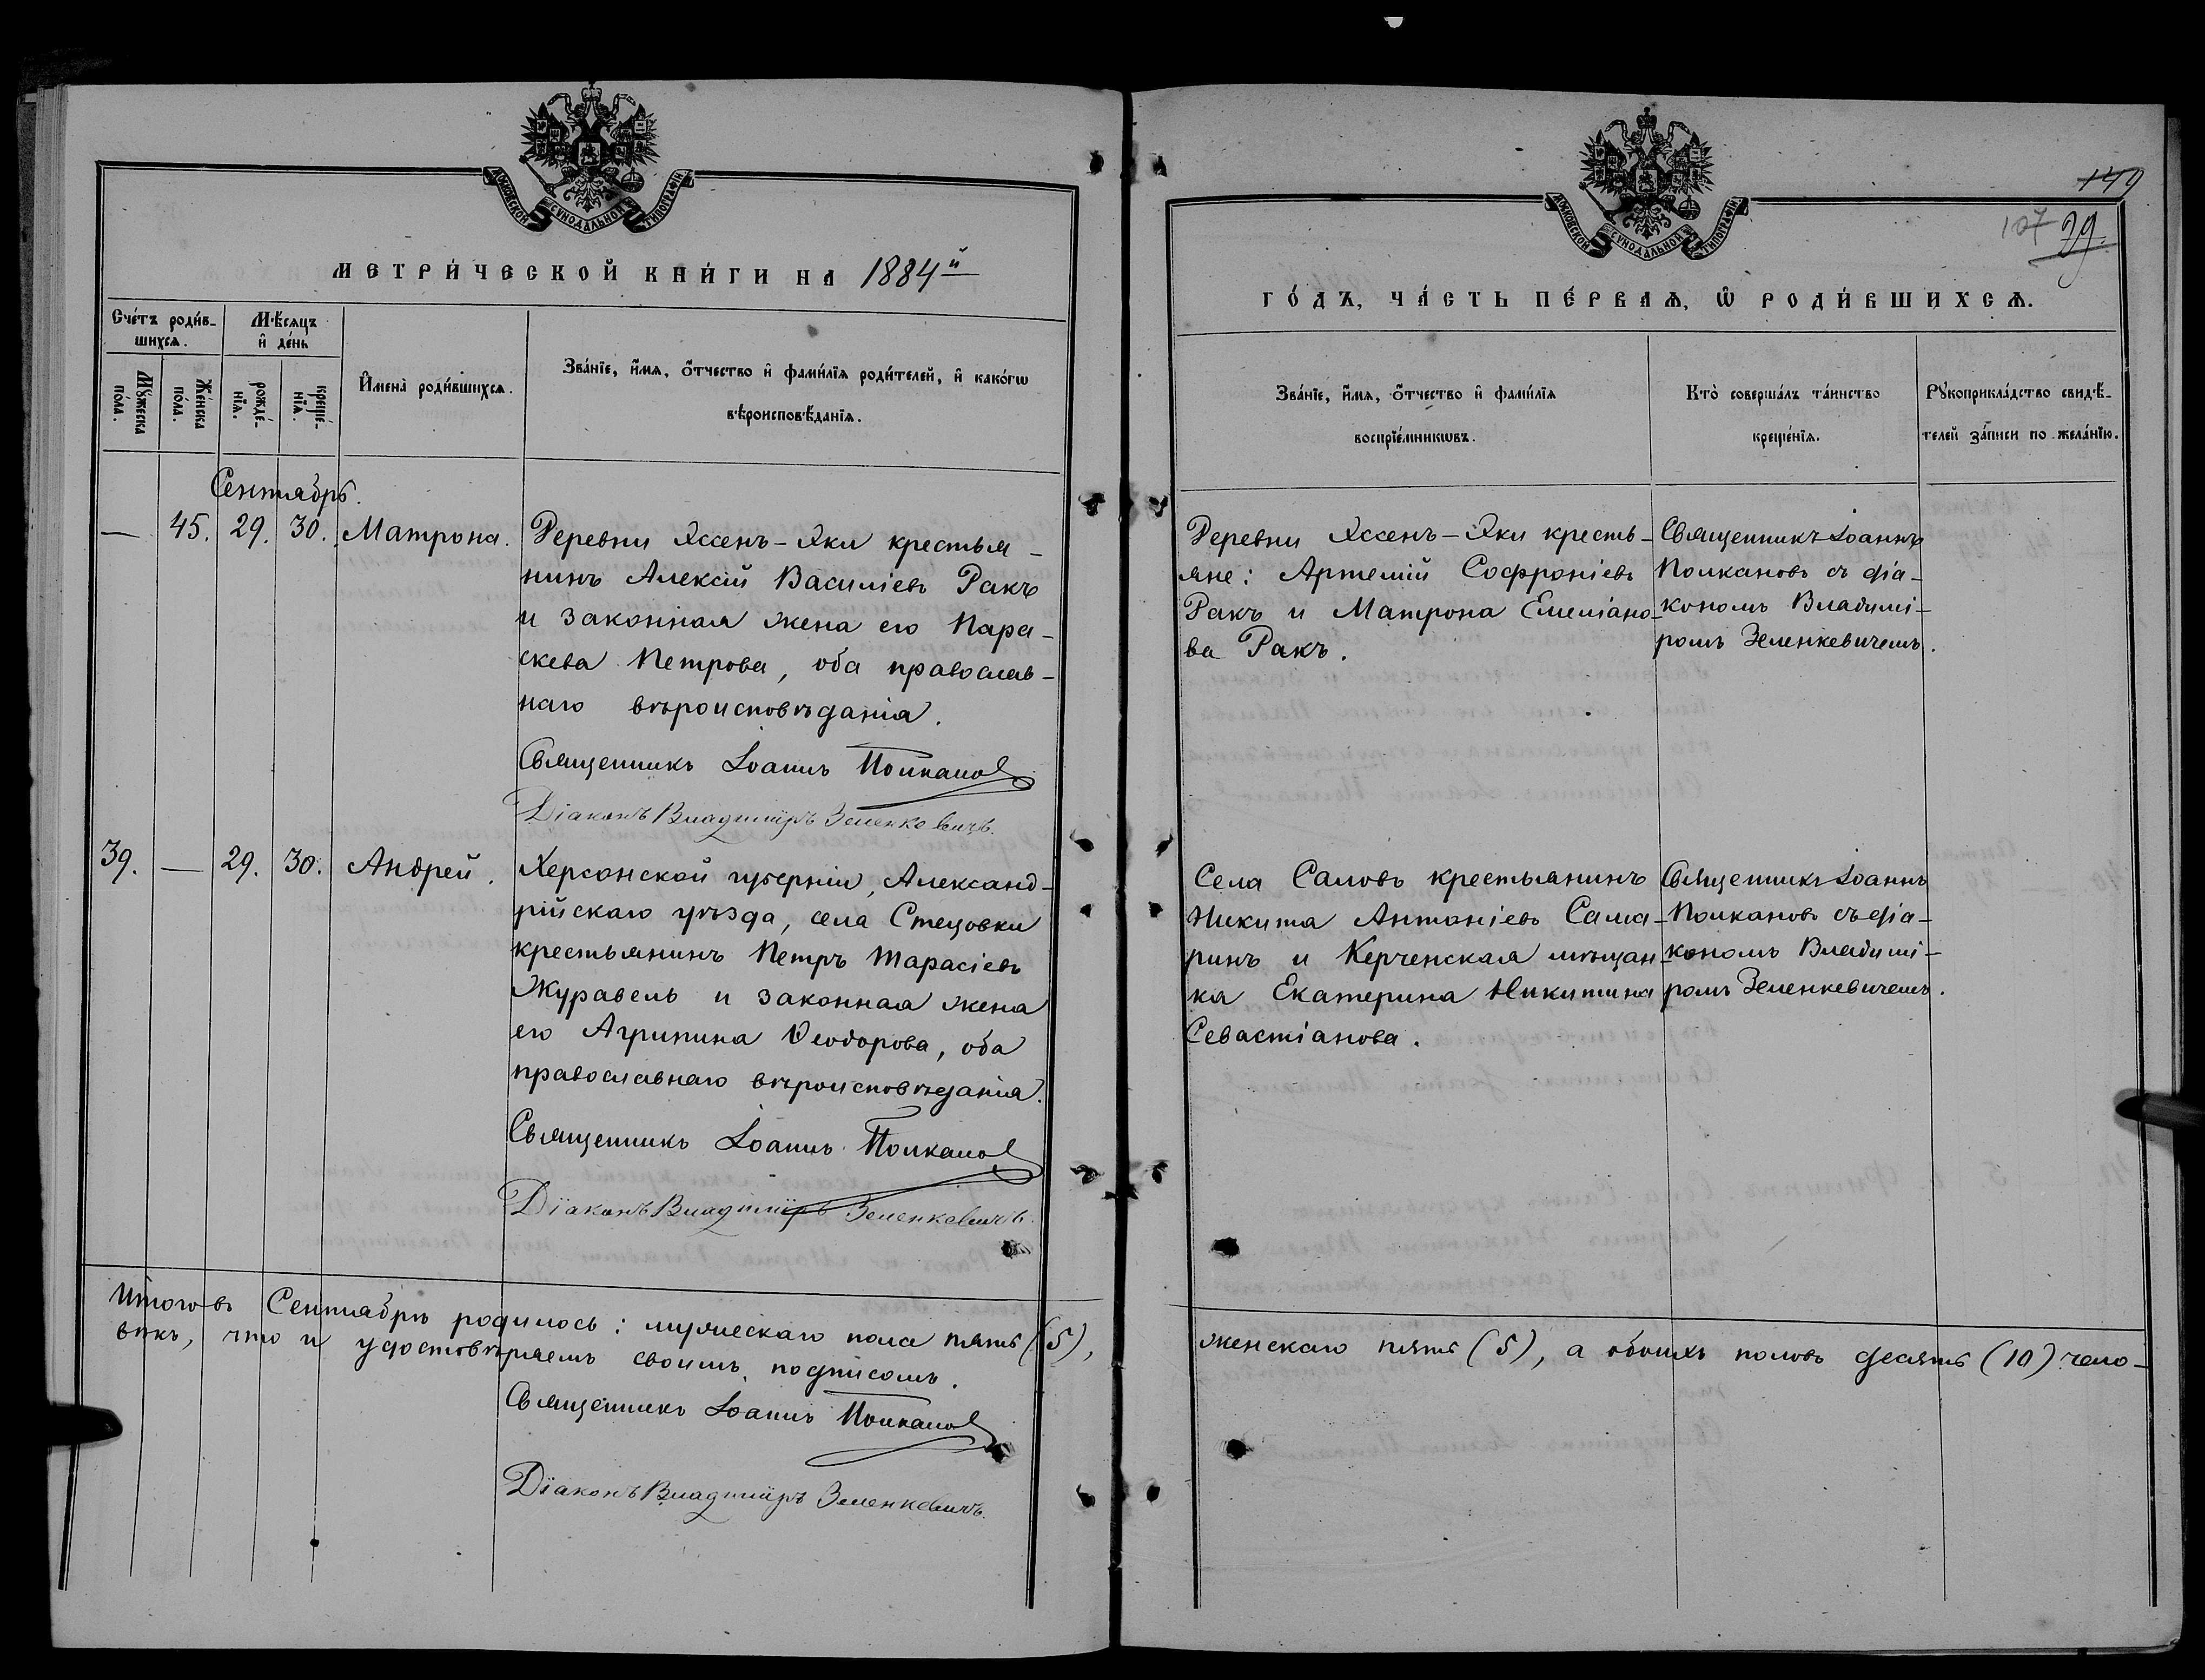 МОСКОВСКОЙ СѴНОДАЛЬНОЙ ТИПОГРАФІИ
МЕТРИ́ЧЕСКОЙ КНИ́ГИ НА 1884й
Сче́тъ роди́в-
шихсѧ.
Мѣ́сѧцъ
и҆ де́нь
Мꙋ́жеска
по́ла.
Же́нска
по́ла.
рожде́-
нїѧ.
креще́-
нїѧ.
И҆мена̀ роди́вшихсѧ.
Зва́нїе, и҆́мѧ, ѻ҆́тчество и҆ фами́лїѧ роди́телей, и҆ како́гѡ
вѣроисповѣ́данїѧ.
Сентябрь.
— 45. 29. 30. Матрона.
Деревни Яссенъ-Яки крестья-
нинъ Алексій Василіевъ Ракъ
и законная жена его Пара-
скева Петрова, оба православ-
наго вѣроисповѣданія.
Священникъ Іоаннъ Полкановъ
Діаконъ Владиміръ Зеленкевичъ.
39. — 29. 30. Андрей.
Херсонской губерніи, Александ-
рійскаго уѣзда, села Стецовки
крестьянинъ Петръ Тарасіевъ
Журавель и законная жена
его Агрипина Ѳеодорова, оба
православнаго вѣроисповѣданія.
Священникъ Іоаннъ Полкановъ
Діаконъ Владиміръ Зеленкевичъ.
Итого въ Сентябрѣ родилось: мужескаго пола пять (5),
вѣкъ, что и удостовѣряемъ своимъ подписомъ.
Священникъ Іоаннъ Полкановъ
Діаконъ Владиміръ Зеленкевичъ.
149
107 79.
МОСКОВСКОЙ СѴНОДАЛЬНОЙ ТИПОГРАФІИ
ГО́ДЪ, ЧА́СТЬ ПЕ́РВАѦ, Ѡ҆ РОДИ́ВШИХСѦ.
Зва́нїе, и҆́мѧ, ѻ҆́тчество и҆ фами́лїѧ
воспрїе́мникѡвъ.
Кто̀ соверша́лъ та́инство
креще́нїѧ.
Рꙋкоприкла́дство свидѣ́-
телей за́писи по жела́нїю.
Деревни Яссенъ-Яки кресть-
яне: Артемій Софроніевъ
Ракъ и Матрона Емеліано-
ва Ракъ.
Священникъ Іоаннъ
Полкановъ съ діа-
кономъ Владимі-
ромъ Зеленкевичемъ.
Села Саловъ крестьянинъ
Никита Антоніевъ Сама-
ринъ и Керченская мѣщан-
ка Екатерина Никитина
Севастіанова.
Священникъ Іоаннъ
Полкановъ съ діа-
кономъ Владимі-
ромъ Зеленкевичемъ.
женскаго пять (5), а обоихъ половъ десять (10) чело-